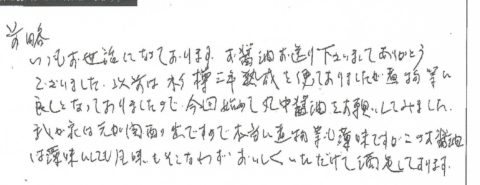 前略
いつもお世話になっております。お醤油お送り下さいましてありがとう
ございました。以前は木樽三年熟成を使っておりましたが煮物等に
良しとなっておりましたので今回始めて丸中醤油をお願いしてみました。
我が家は元が関西の生ですので本当に煮物等も薄味ですがこのお醤油
は薄味にしても風味もそこなわずおいしくいただけて満足しております。